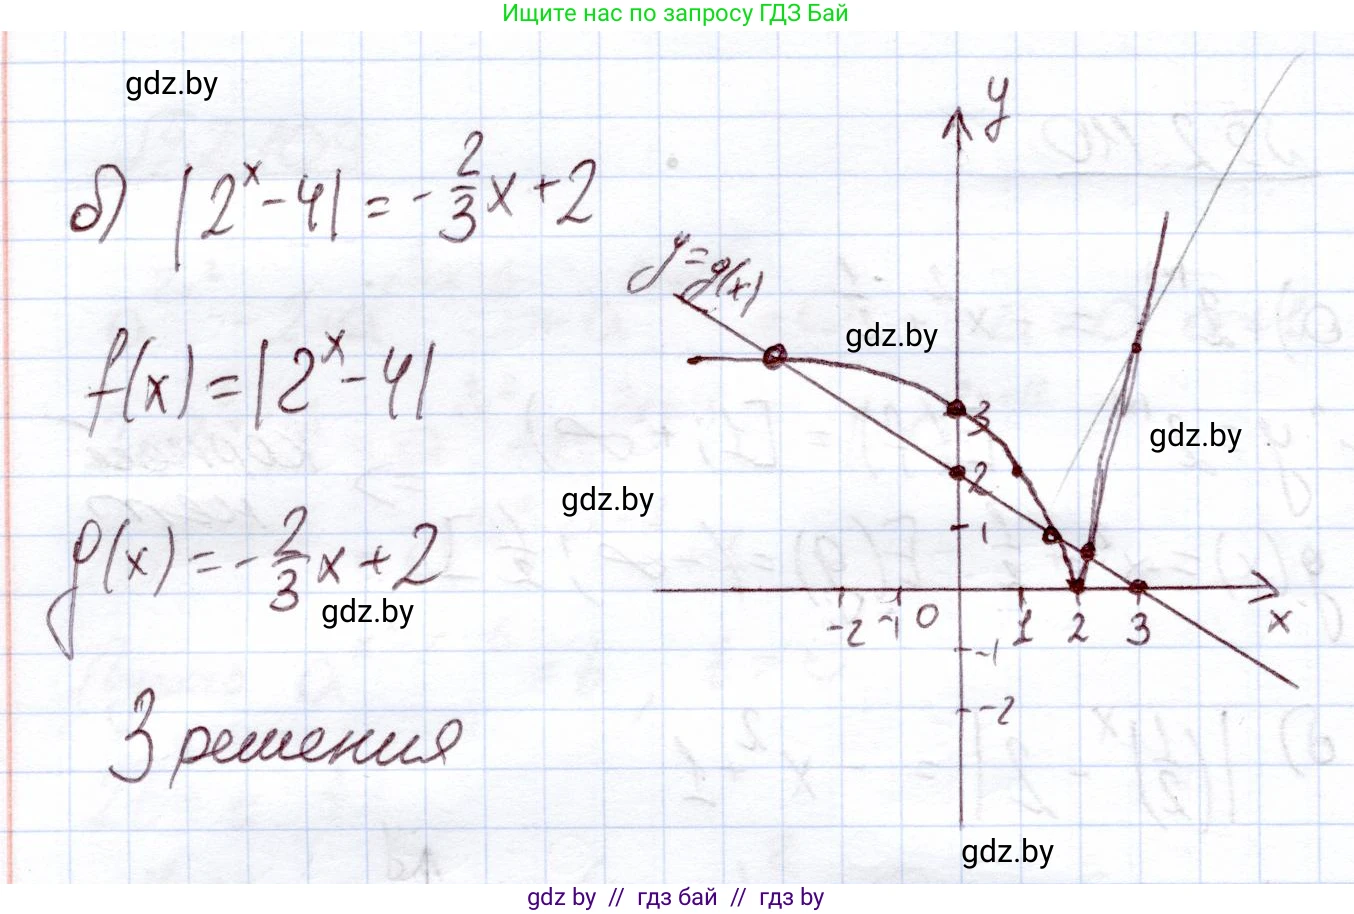 Ищите нас по запросу ГДЗ Бай
gdz.by
б) |2^x - 4| = -2/3 x + 2
y
y = g(x)
gdz.by
f(x) = |2^x - 4|
3
gdz.by
2
gdz.by
1
g(x) = -2/3 x + 2
gdz.by
-2 -1 0 1 2 3 x
-1
3 решения
-2
gdz.by
gdz.by // гдз бай // гдз by